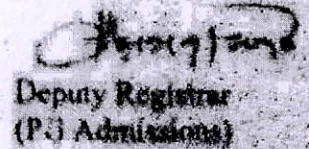 Deputy Registrar
(P.G Admissions)